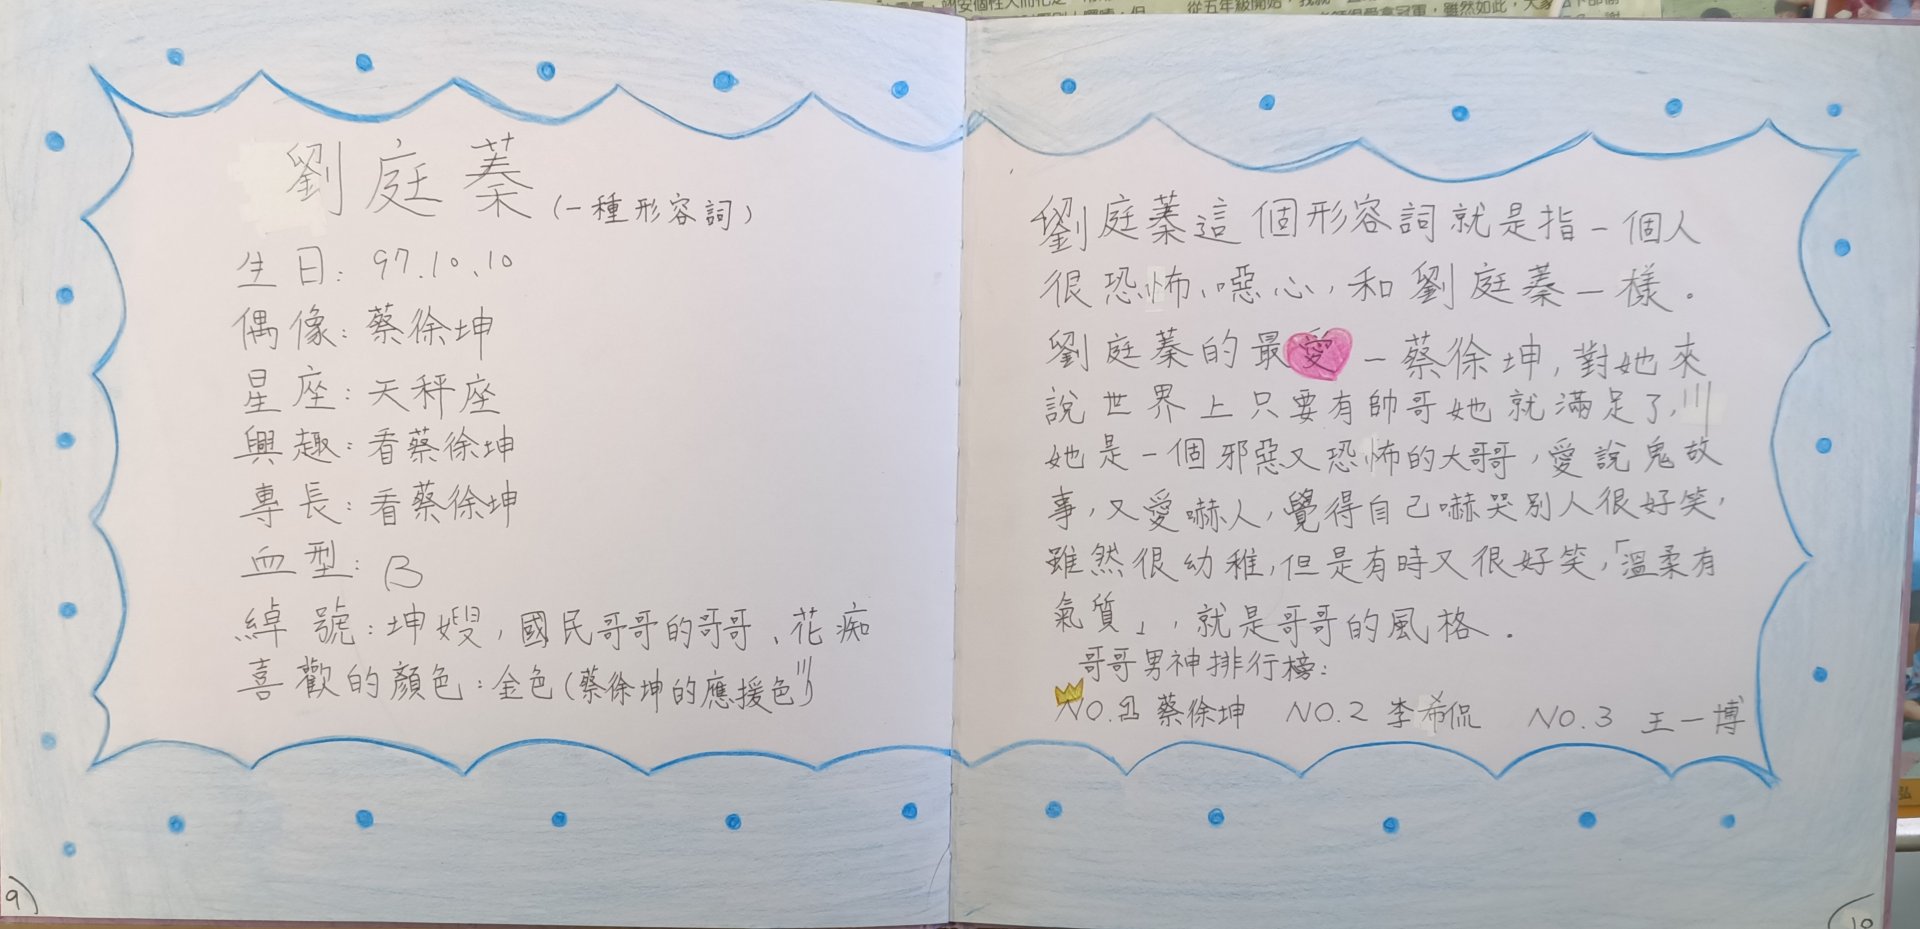 劉庭蓁(一種形容詞)
生日：97.10.10
偶像：蔡徐坤
星座：天秤座
興趣：看蔡徐坤
專長：看蔡徐坤
血型：B
綽號：坤嫂，國民哥哥的哥哥、花痴
喜歡的顏色：金色(蔡徐坤的應援色)
9
劉庭蓁這個形容詞就是指一個人
很恐怖、噁心，和劉庭蓁一樣。
劉庭蓁的最愛－蔡徐坤，對她來
說世界上只要有帥哥她就滿足了，
她是一個邪惡又恐怖的大哥哥，愛說鬼故
事，又愛嚇人，覺得自己嚇哭別人很好笑，
雖然很幼稚，但是有時又很好笑，「溫柔有
氣質」，就是哥哥的風格。
哥哥男神排行榜：
NO.1 蔡徐坤 NO.2 李希侃 NO.3 王一博
10